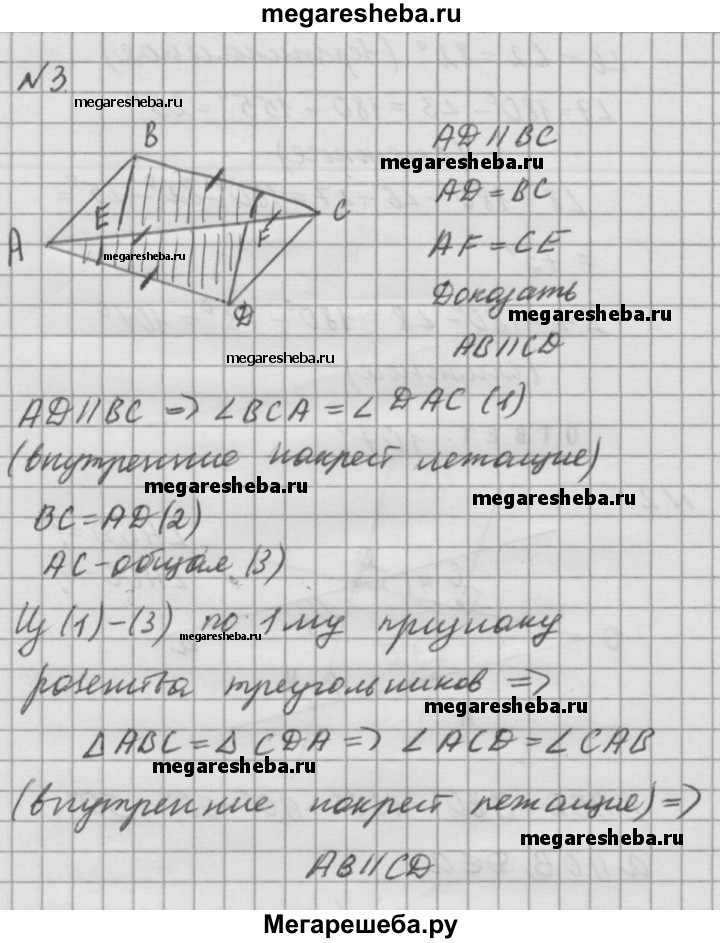 megaresheba.ru
№3
megaresheba.ru
B
AD || BC
megaresheba.ru
AD = BC
E
C
A
F
AF = CE
megaresheba.ru
Доказать
D
megaresheba.ru
AB || CD
megaresheba.ru
AD || BC => ∠BCA = ∠DAC (1)
(внутренние накрест лежащие)
megaresheba.ru
megaresheba.ru
BC = AD (2)
AC - общая (3)
Из (1)-(3) по 1му признаку
megaresheba.ru
равенства треугольников =>
megaresheba.ru
Δ ABC = Δ CDA => ∠ACD = ∠CAB
megaresheba.ru
(внутренние накрест лежащие) =>
megaresheba.ru
AB || CD
Мегарешеба.ру